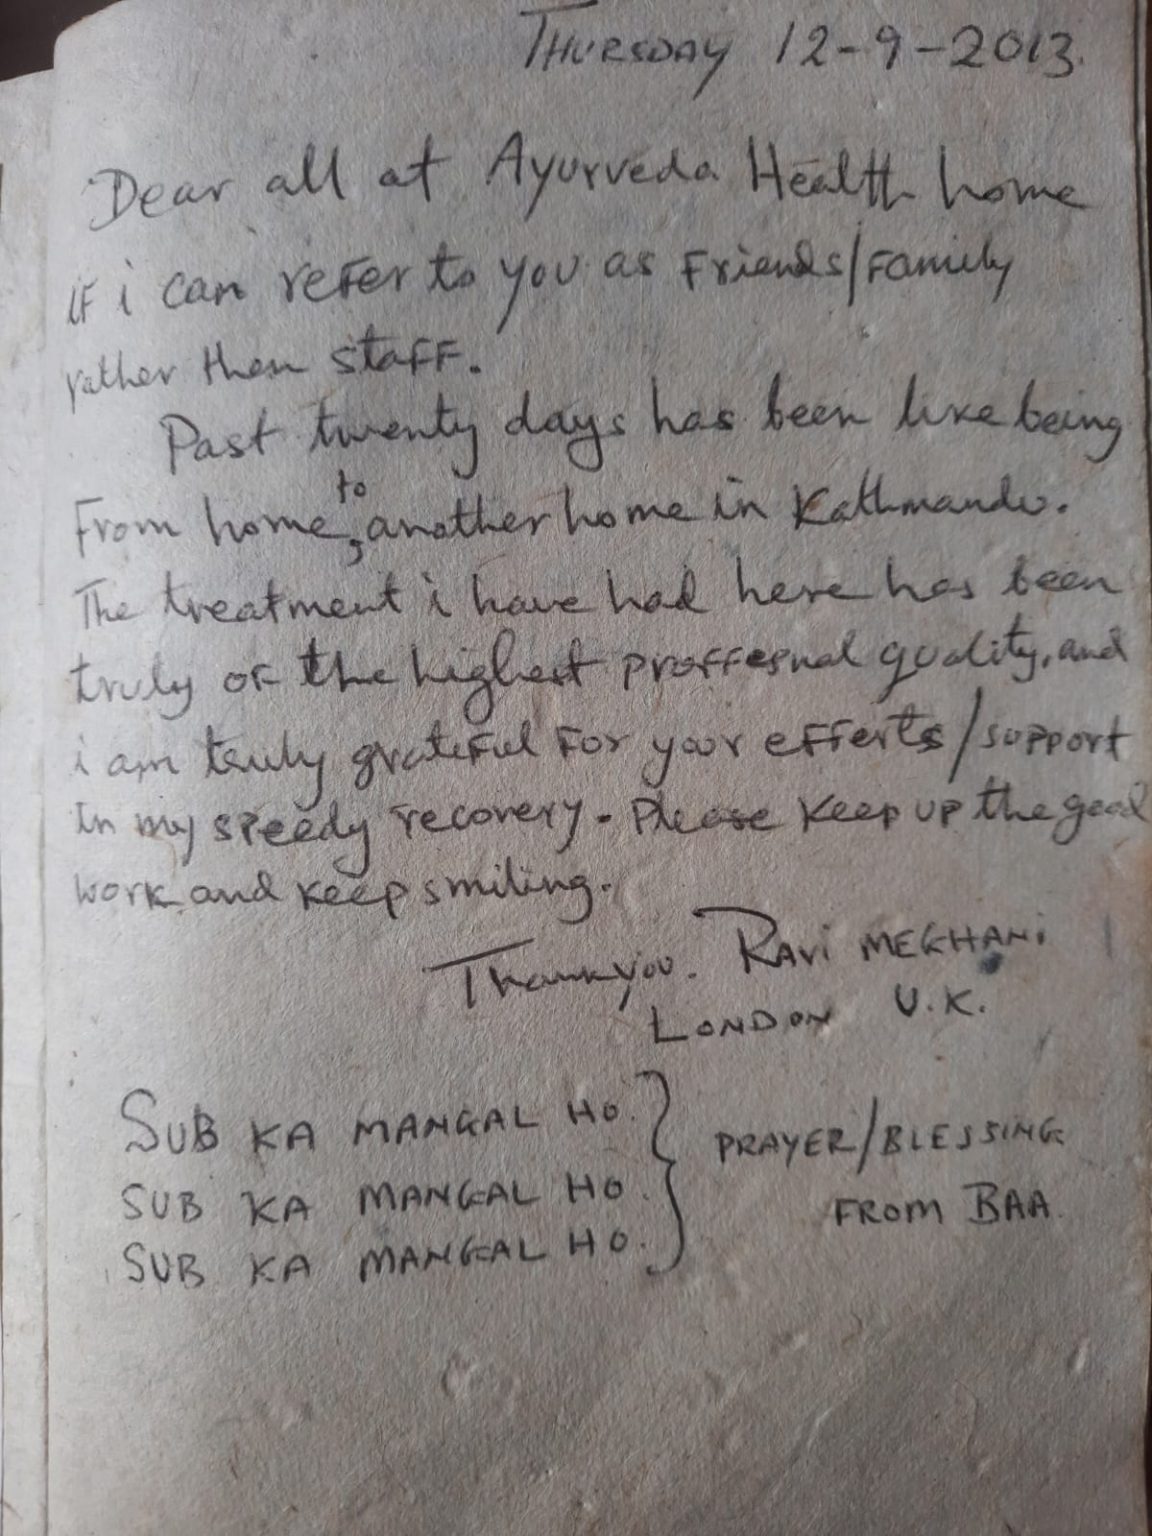 THURSDAY 12-9-2013.
Dear all at Ayurveda Health home
if i can refer to you as Friends/Family
rather then staff.
Past twenty days has been like being
From home, to another home in Kathmandu.
The treatment i have had here has been
truly of the highest proffesnal quality, and
i am truly grateful for your efferts/support
In my speedy recovery. Please keep up the good
work and keep smiling.
Thankyou. RAVi MEGHANi
LONDON U.K.
SUB KA MANGAL HO.
SUB KA MANGAL HO.
SUB KA MANGAL HO.
PRAYER/BLESSING
FROM BAA.